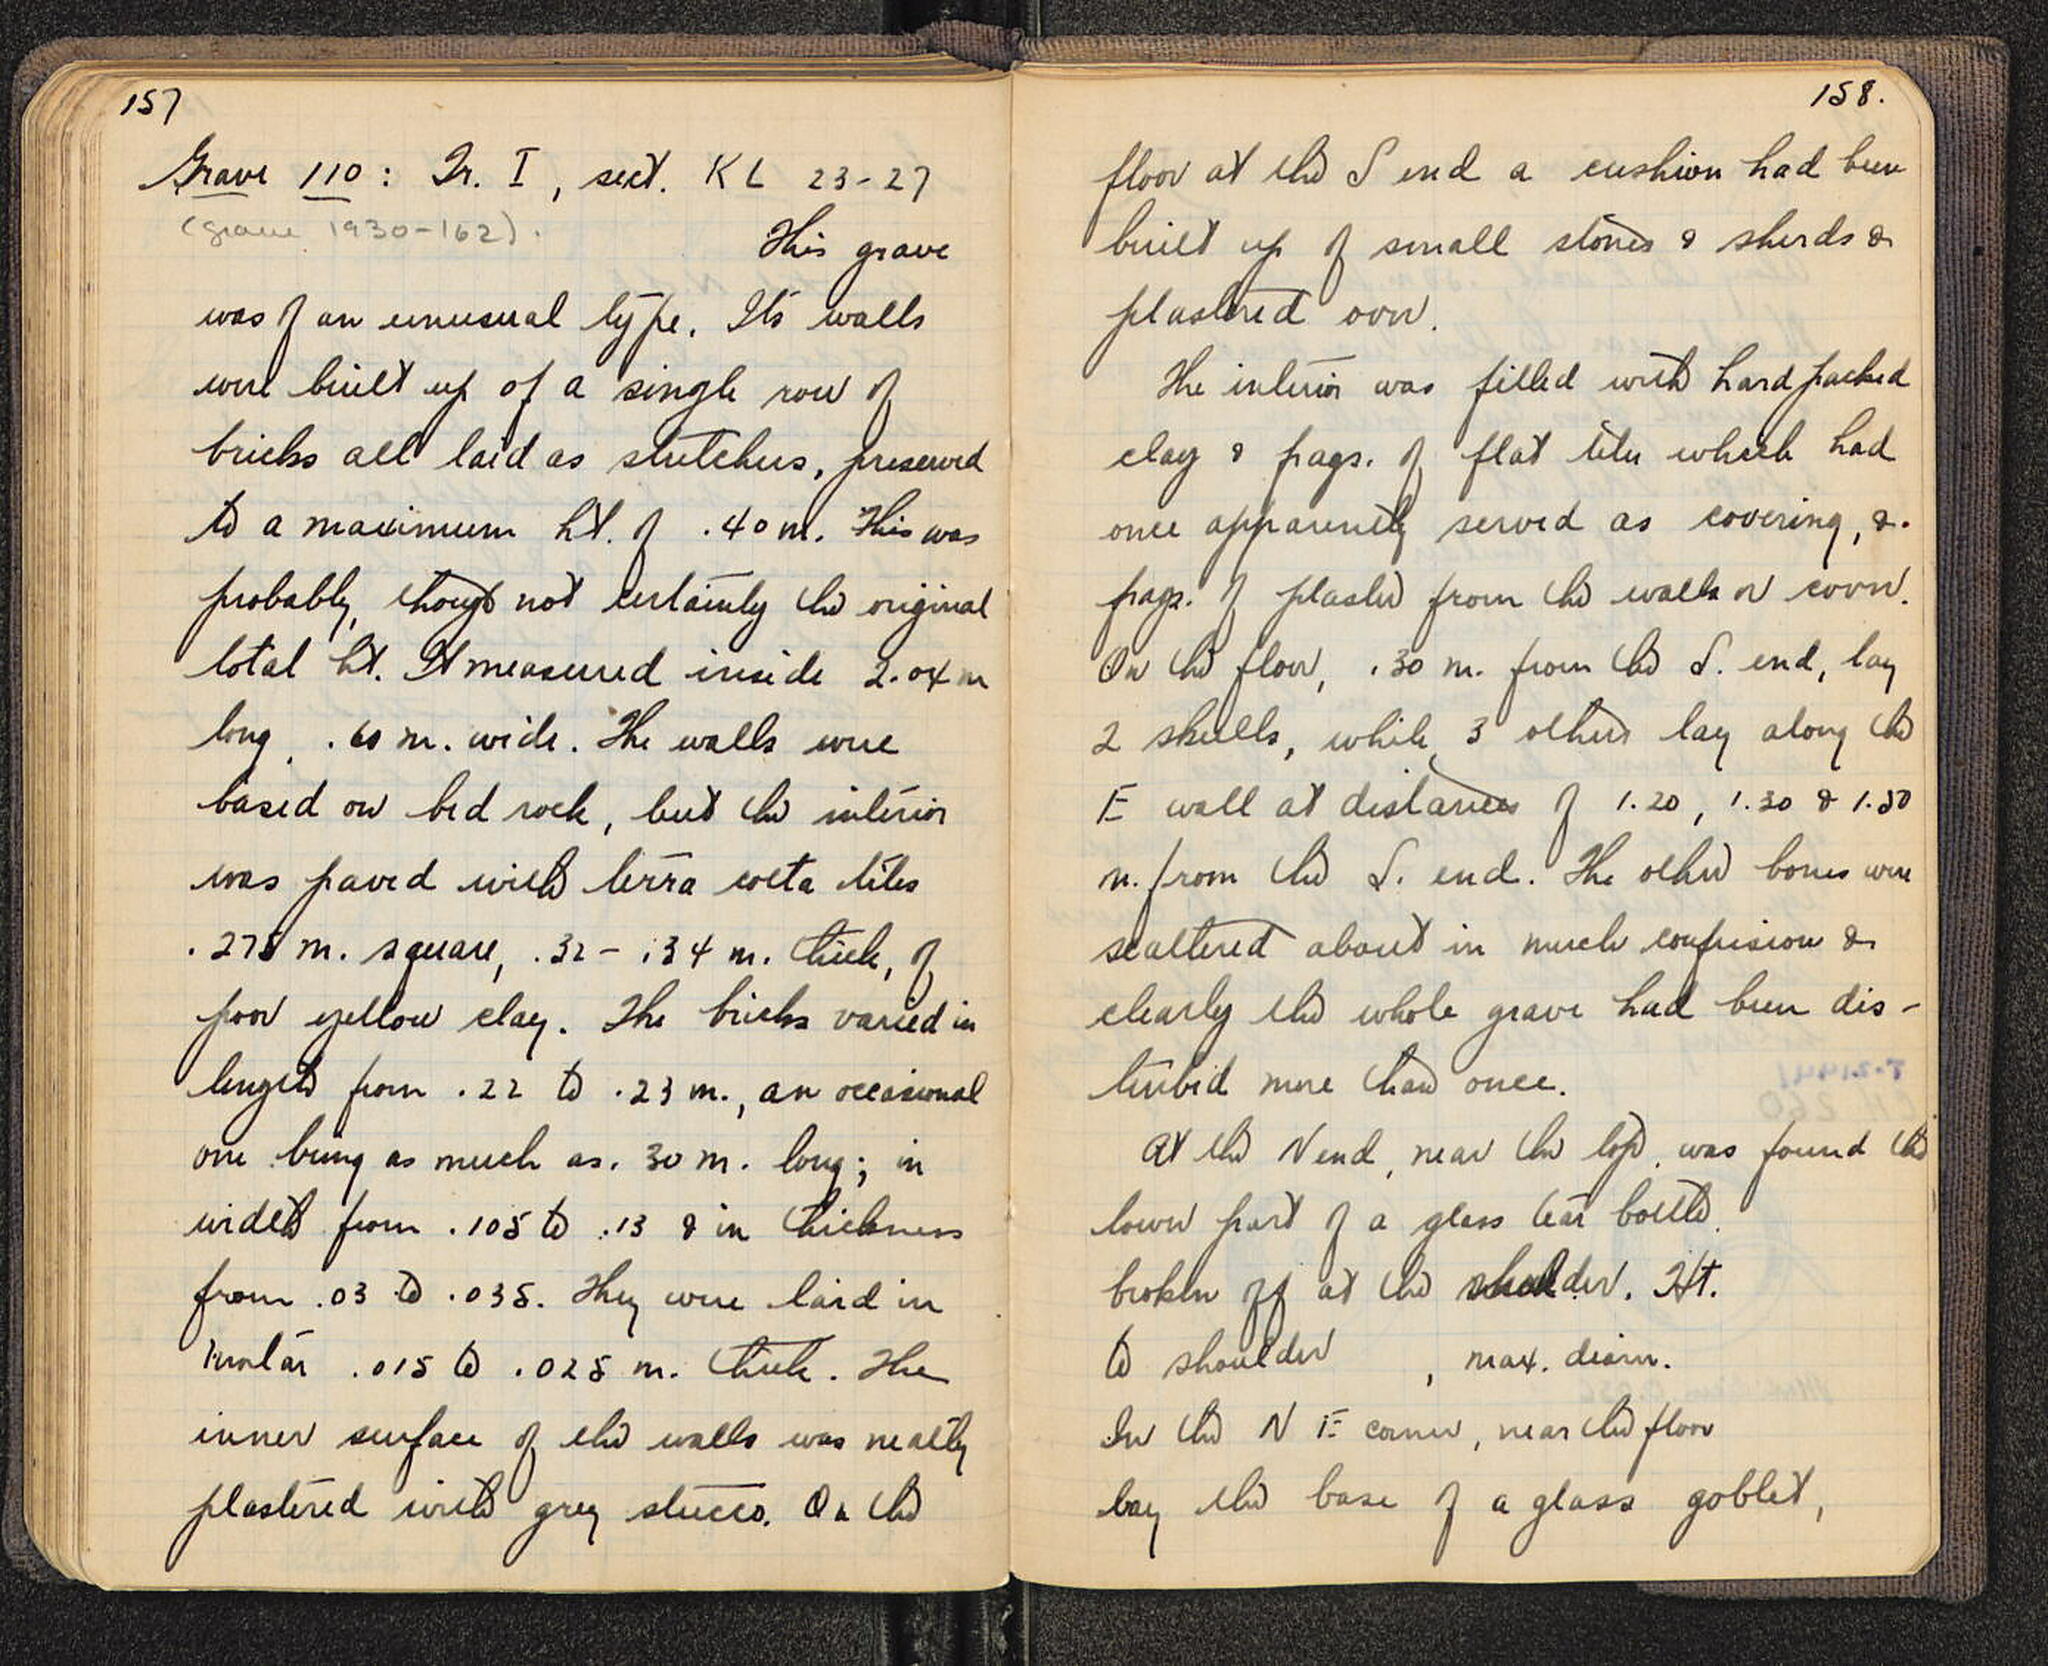 157
Grave 110: Tr. I, sect. KL 23-27
(grave 1930-162).
This grave
was of an unusual type. Its walls
were built up of a single row of
bricks all laid as stretchers, preserved
to a maximum ht. of .40 m. This was
probably, though not certainly the original
total ht. It measured inside 2.04 m
long, .60 m. wide. The walls were
based on bed rock, but the interior
was paved with terra cotta tiles
.275 m. square, .32 - .34 m. thick, of
poor yellow clay. The bricks varied in
length from .22 to .23 m., an occasional
one being as much as .30 m. long; in
width from .105 to .13 & in thickness
from .03 to .035. They were laid in
mortar .015 to .025 m. thick. The
inner surface of the walls was neatly
plastered with grey stucco. On the
158.
floor at the S end a cushion had been
built up of small stones & sherds &
plastered over.
The interior was filled with hard packed
clay & frags. of flat tiles which had
once apparently served as covering, &
frags. of plaster from the walls or cover.
On the floor, .30 m. from the S. end, lay
2 skulls, while 3 others lay along the
E wall at distances of 1.20, 1.30 & 1.50
m. from the S. end. The other bones were
scattered about in much confusion &
clearly the whole grave had been dis-
turbed more than once.
At the N end, near the top, was found the
lower part of a glass tear bottle
broken off at the shoulder. Ht.
to shoulder , max. diam.
In the N E corner, near the floor
lay the base of a glass goblet,